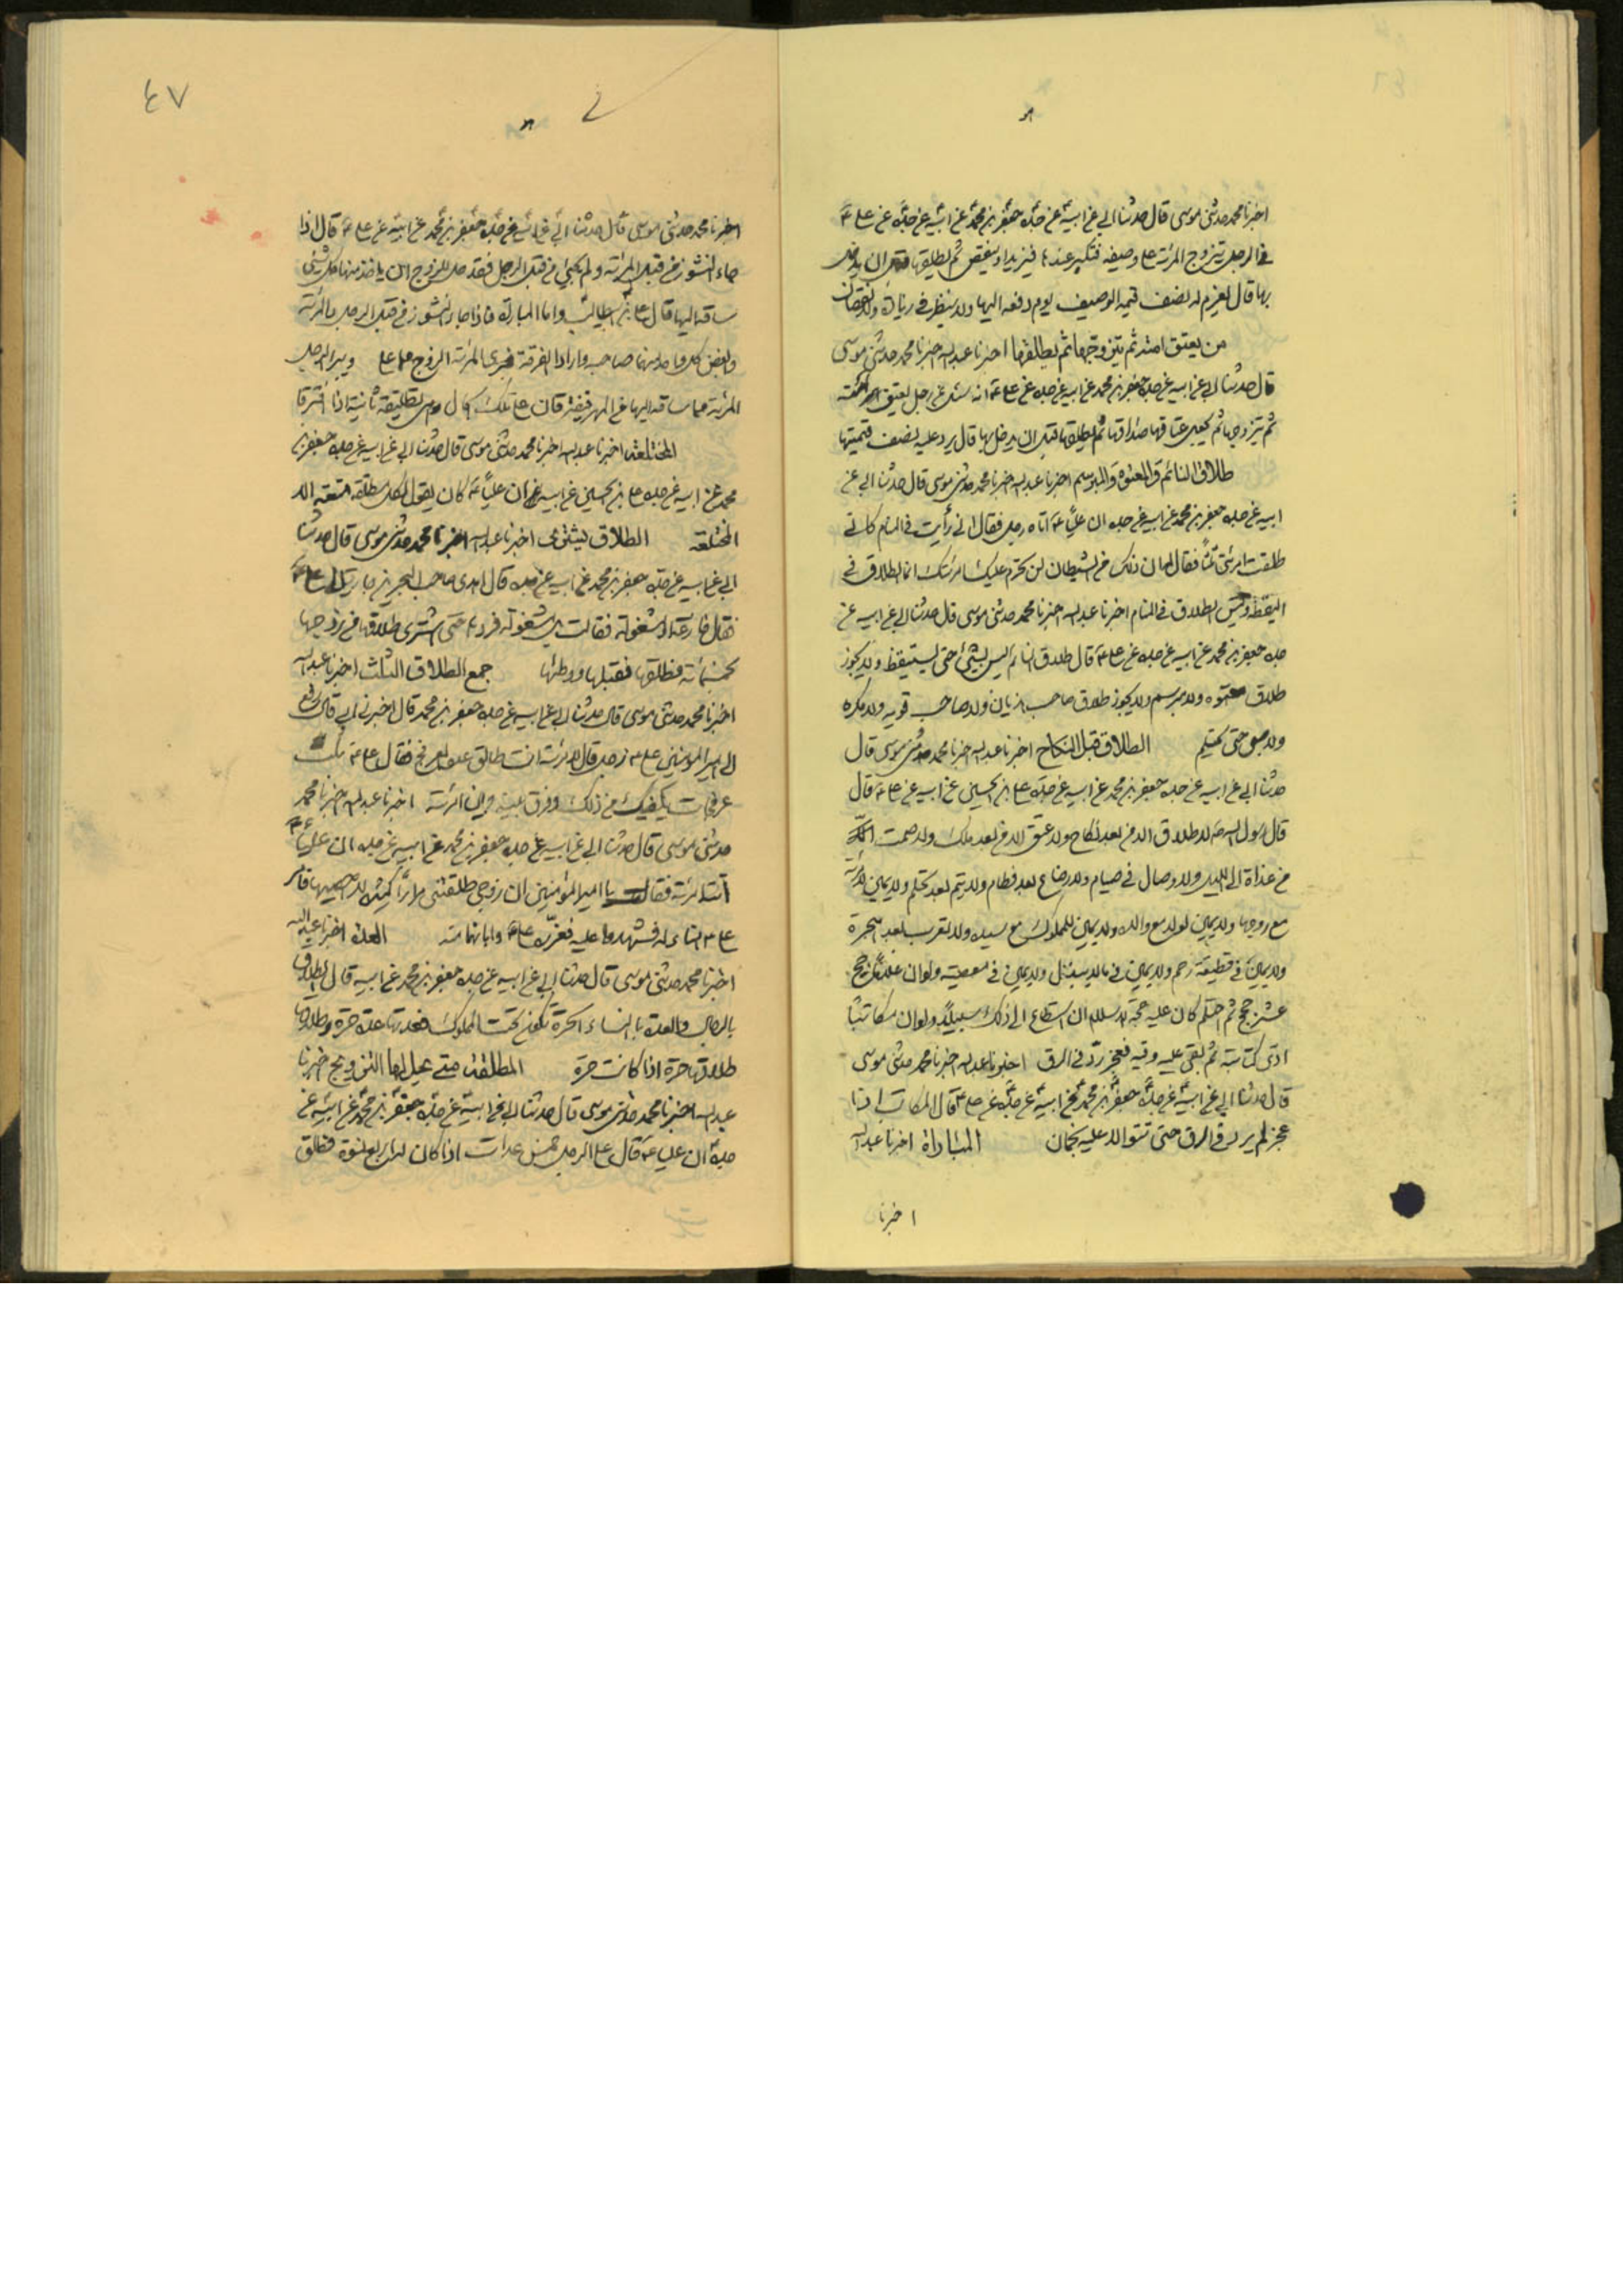 اخبرنا محمد حدثنى موسى قال حدثنا ابى عن ابيه عن جده جعفر بن محمد عن ابيه عن جده عن على ع
فى الرجل يتزوج المرئة على وصيفه فتكبر عندها فيزيد او ينقص ثم يطلقها قبل ان يدخل
بها قال يغرم له نصف قيمه الوصيف يوم دفعه اليها ولا ينظر فى زيادة ولا نقصان
من يعتق امته ثم يتزوجها ثم يطلقها اخبرنا عبدالله اخبرنا محمد حدثنى موسى
قال حدثنا ابى عن ابيه عن جده جعفر بن محمد عن ابيه عن جده عن على ع انه سئل عن رجل يعتق امته
ثم يتزوجها ثم يجعل عتاقها صداقها ثم يطلقها قبل ان يدخل بها قال يرد عليه نصف قيمتها
طلاق النائم والمعتوه والمبرسم اخبرنا عبدالله اخبرنا محمد حدثنى موسى قال حدثنا ابى عن
ابيه عن جده جعفر بن محمد عن ابيه عن جده ان عليا ع اتاه رجل فقال انى رأيت فى المنام كانى
طلقت امرئتى ثلثا فقال له ان ذلك من الشيطان لن تحرم عليك امرئتك انما الطلاق فى
اليقظة وليس الطلاق فى المنام اخبرنا عبدالله اخبرنا محمد حدثنى موسى قال حدثنا ابى عن ابيه عن
جده جعفر بن محمد عن ابيه عن جده عن على ع قال طلاق النائم ليس بشئ حتى يستيقظ ولا يجوز
طلاق معتوه ولا مبرسم ولا يجوز طلاق صاحب هذيان ولا صاحب ولا مكره
ولا صبى حتى يحتلم الطلاق قبل النكاح اخبرنا عبدالله اخبرنا محمد حدثنى موسى قال
حدثنا ابى عن ابيه عن جده جعفر بن محمد عن ابيه عن جده على بن الحسين عن ابيه عن على ع قال
قال رسول الله ص لا طلاق الا من بعد نكاح ولا عتق الا من بعد ملك ولا صمت
من غداة الى الليل ولا وصال فى صيام ولا رضاع بعد فطام ولا يتم بعد تحلم ولا يمين لامرئة
مع زوجها ولا يمين لولد مع والده ولا يمين للمملوك مع سيده ولا تعرب بعد الهجرة
ولا يمين فى قطيعة رحم ولا يمين فى ما لا يبذل ولا يمين فى معصيته ولو ان غلاما حج
عشر حجج ثم احتلم كان عليه حجة الاسلام ان استطاع الى ذلك سبيلا ولو ان مكاتبا
ادى مكاتبته ثم بقى عليه وقيه فعجز رد فى الرق اخبرنا عبدالله اخبرنا محمد حدثنى موسى
قال حدثنا ابى عن ابيه عن جده جعفر بن محمد عن ابيه عن جده عن على ع قال المكاتب اذا
عجز لم يرد فى الرق حتى تتوالى عليه نجمان المباراة اخبرنا عبدالله
اخبرنا
٤٧
اخبرنا محمد حدثنى موسى قال حدثنا ابى عن ابيه عن جده جعفر بن محمد عن ابيه عن على ع قال اذا
جاء النشوز من قبل المرئة ولم يجئ من قبل الرجل فقد حل للزوج ان ياخذ منها كل شئ
ساقه اليها قال على بن ابيطالب واما المباراة فاذا جاء النشوز من قبل الرجل والمرئة
وابغض كل واحد منهما صاحبه وارادا الفرقة
المرئة مما ساقه اليها من المهر تطليقة ثانية اذا افترقا
المختلعة اخبرنا عبدالله اخبرنا محمد حدثنى موسى قال حدثنا ابى عن ابيه عن جده جعفر بن
محمد عن ابيه عن جده على بن الحسين عن ابيه ان عليا ع كان يقول لكل مطلقة متعة الا
المختلعة الطلاق يشترى اخبرنا عبدالله اخبرنا محمد حدثنى موسى قال حدثنا
ابى عن ابيه عن جده جعفر بن محمد عن ابيه عن جده قال اهدى صاحب البحرين جارية الى على ع
فقال فارغة او مشغولة فقالت بل مشغولة فردها حتى اشترى طلاقها من زوجها
بخمسمائة فطلقها فقبلها ووطئها جمع الطلاق الثلث اخبرنا عبدالله
اخبرنا محمد حدثنى موسى قال حدثنا ابى عن ابيه عن جده جعفر بن محمد قال اخبرنى ابى قال رفع
الى امير المؤمنين على ع رجل قال لامرئته انت طالق عدد العرفج فقال على ع ثلث
عرفجات يكفيك من ذلك وفرق بينه وبين امرئته اخبرنا عبدالله اخبرنا محمد
حدثنى موسى قال حدثنا ابى عن ابيه عن جده جعفر بن محمد عن ابيه عن جده ان عليا ع
اتته امرئة فقالت يا امير المؤمنين ان زوجى طلقنى مرارا كثيرة لا احصيها فامر
على ع فشهدوا عليه فعزره على ع وابانها منه العدة اخبرنا عبدالله
اخبرنا محمد حدثنى موسى قال حدثنا ابى عن ابيه عن جده جعفر بن محمد عن ابيه قال الطلاق
بالرجال والعدة بالنساء الحرة تكون تحت المملوك فعدتها عدة حرة وطلاقها
طلاق حرة اذا كانت حرة المطلقة متى يحل لها التزويج اخبرنا
عبدالله اخبرنا محمد حدثنى موسى قال حدثنا ابى عن ابيه عن جده جعفر بن محمد عن ابيه عن
جده ان عليا ع قال على الرجل خمس عدات اذا كان له اربع نسوة فطلق